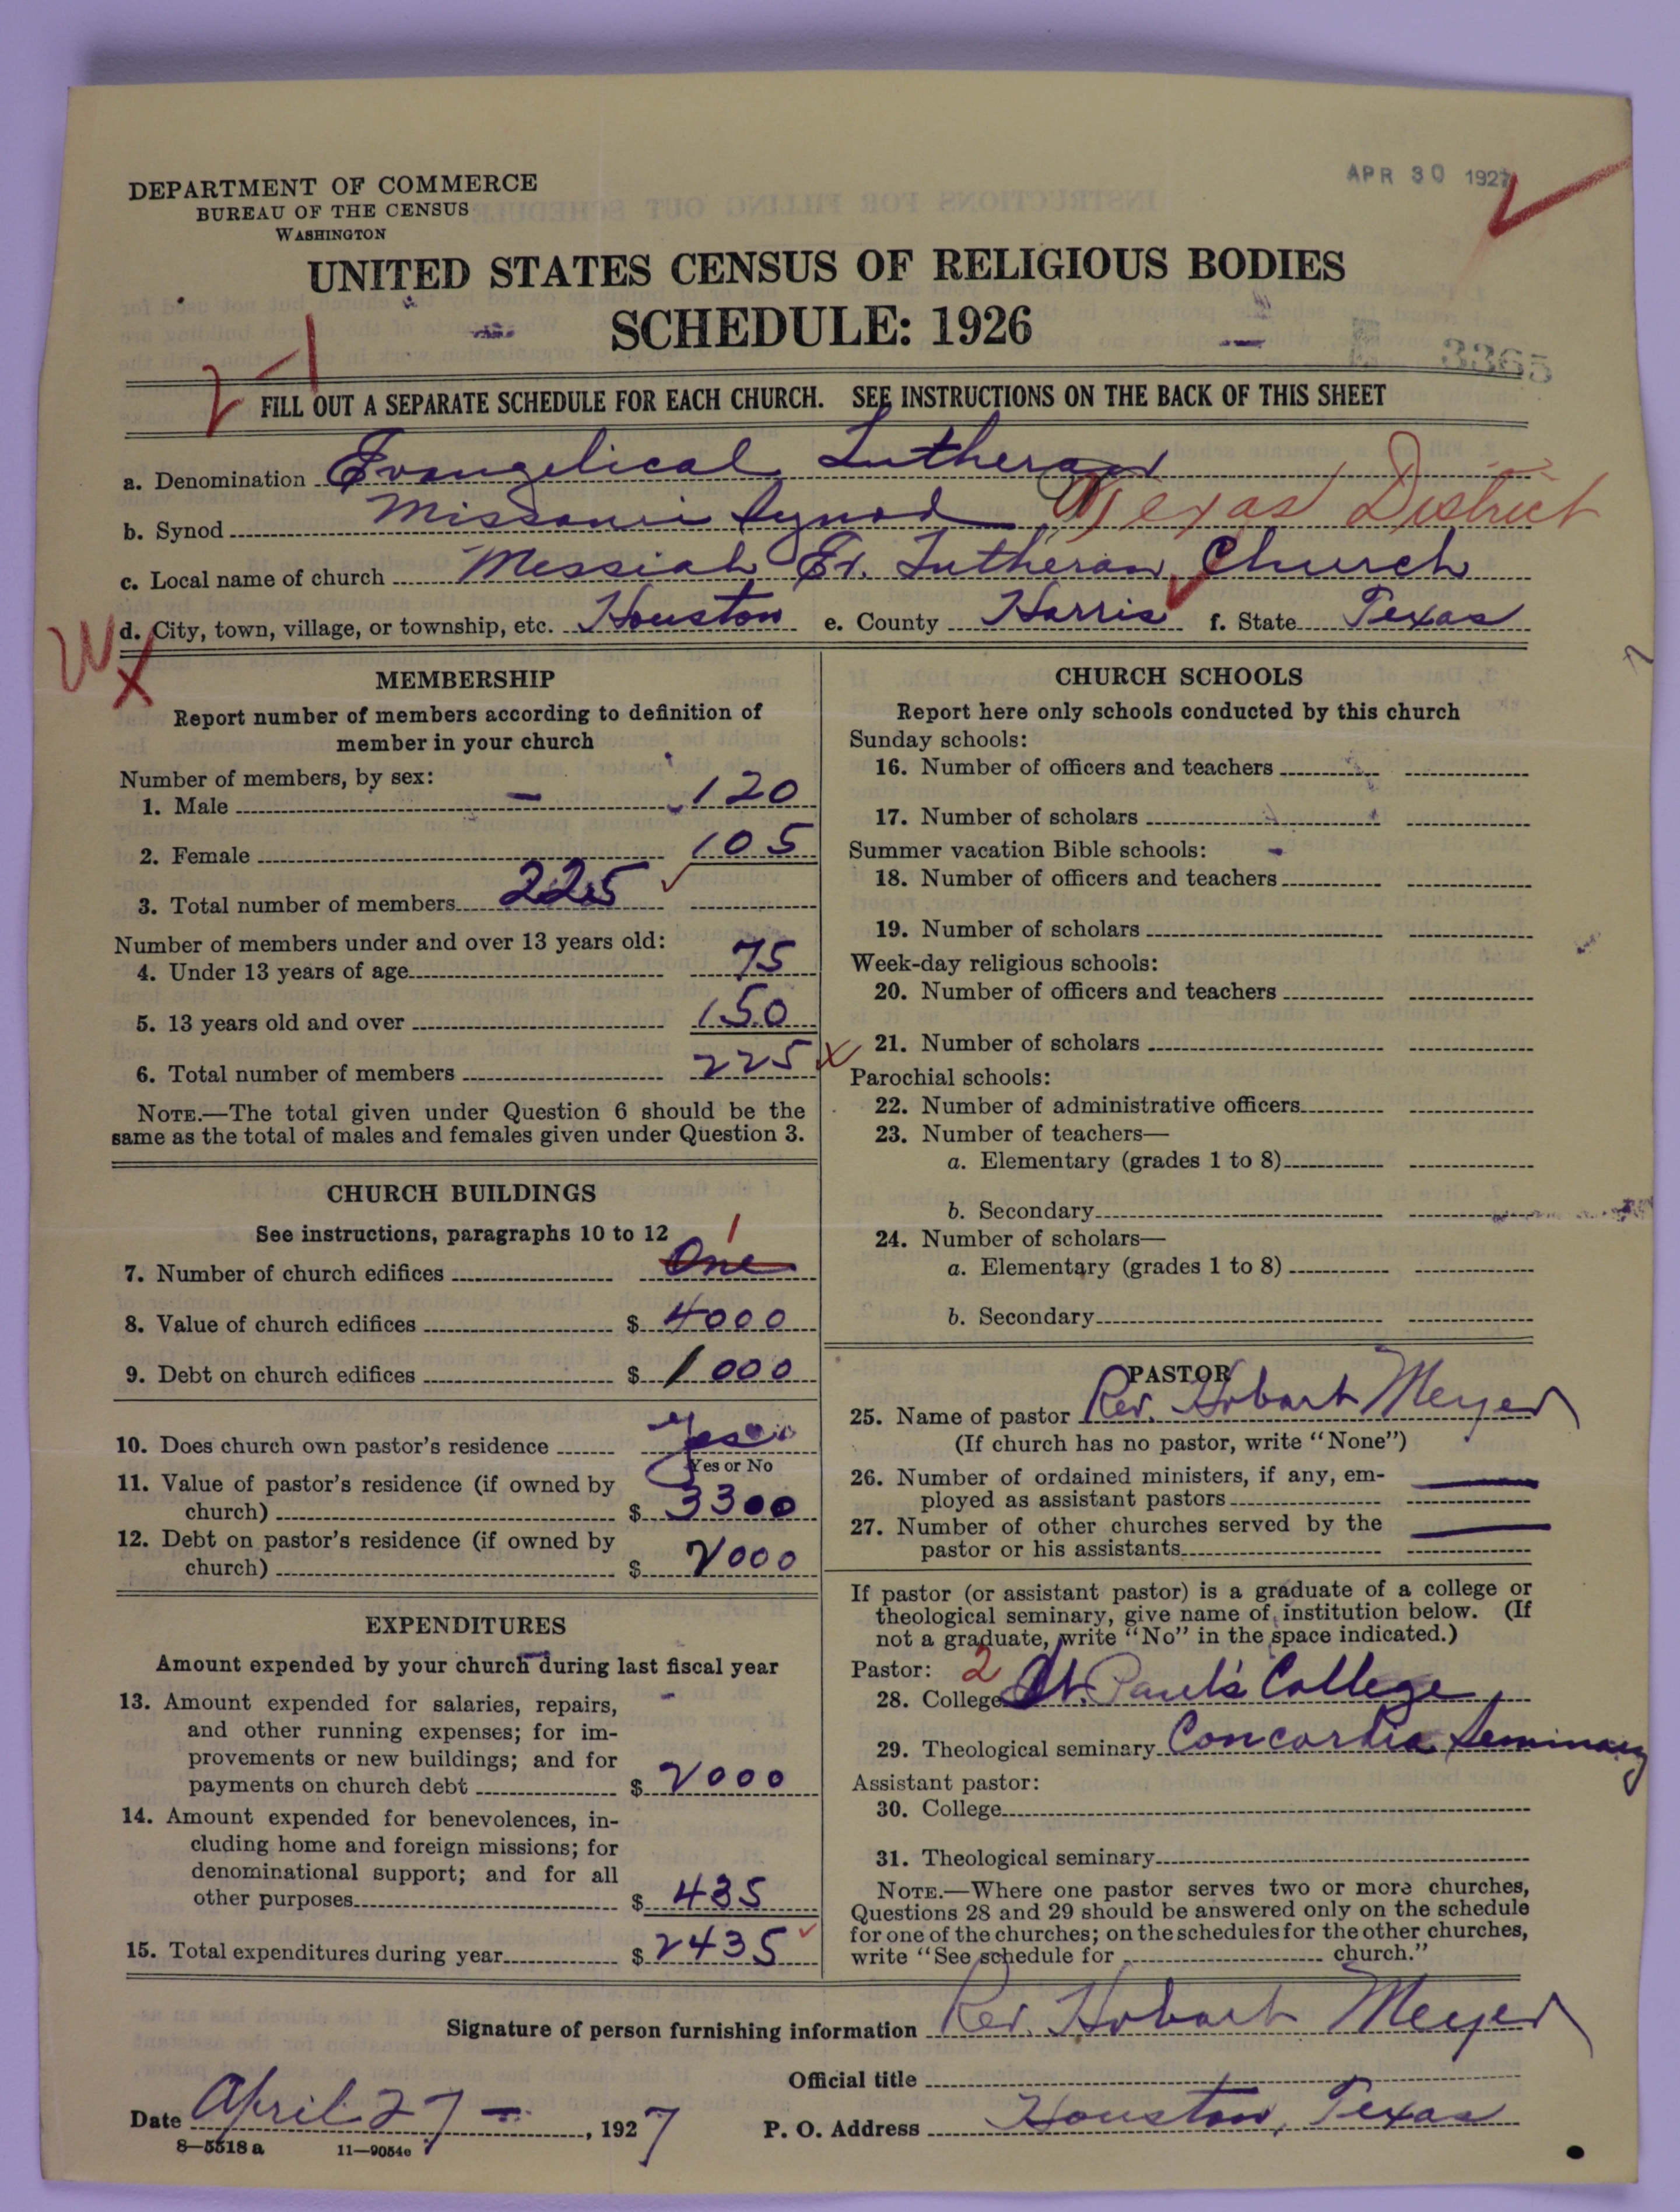 DEPARTMENT OF COMMERCE
BUREAU OF THE CENSUS
WASHINGTON
APR 30 1927
UNITED STATES CENSUS OF RELIGIOUS BODIES
SCHEDULE: 1926
FILL OUT A SEPARATE SCHEDULE FOR EACH CHURCH. SEE INSTRUCTIONS ON THE BACK OF THIS SHEET
a. Denomination Evangelical Lutheran
b. Synod Missouri Synod Texas District
c. Local name of church Messiah Ev. Lutheran Church
d. City, town, village, or township, etc. Houston e. County Harris f. State Texas
MEMBERSHIP
Report number of members according to definition of
member in your church
Number of members, by sex:
1. Male 120
2. Female 105
3. Total number of members 225
Number of members under and over 13 years old:
4. Under 13 years of age 75
5. 13 years old and over 150
6. Total number of members 225
NOTE.—The total given under Question 6 should be the
same as the total of males and females given under Question 3.
CHURCH BUILDINGS
See instructions, paragraphs 10 to 12
1
7. Number of church edifices One
8. Value of church edifices $ 4000
9. Debt on church edifices $ 1000
10. Does church own pastor's residence Yes
Yes or No
11. Value of pastor's residence (if owned by
church) $ 3300
12. Debt on pastor's residence (if owned by
church) $ 2000
EXPENDITURES
Amount expended by your church during last fiscal year
13. Amount expended for salaries, repairs,
and other running expenses; for im-
provements or new buildings; and for
payments on church debt $ 2000
14. Amount expended for benevolences, in-
cluding home and foreign missions; for
denominational support; and for all
other purposes $ 435
15. Total expenditures during year $ 2435
CHURCH SCHOOLS
Report here only schools conducted by this church
Sunday schools:
16. Number of officers and teachers
17. Number of scholars
Summer vacation Bible schools:
18. Number of officers and teachers
19. Number of scholars
Week-day religious schools:
20. Number of officers and teachers
21. Number of scholars
Parochial schools:
22. Number of administrative officers
23. Number of teachers—
a. Elementary (grades 1 to 8)
b. Secondary
24. Number of scholars—
a. Elementary (grades 1 to 8)
b. Secondary
PASTOR
25. Name of pastor Rev. Hobart Meyer
(If church has no pastor, write "None")
26. Number of ordained ministers, if any, em-
ployed as assistant pastors
27. Number of other churches served by the
pastor or his assistants
If pastor (or assistant pastor) is a graduate of a college or
theological seminary, give name of institution below. (If
not a graduate, write "No" in the space indicated.)
Pastor: 2
28. College St. Paul's College
29. Theological seminary Concordia Seminary
Assistant pastor:
30. College
31. Theological seminary
NOTE.—Where one pastor serves two or more churches,
Questions 28 and 29 should be answered only on the schedule
for one of the churches; on the schedules for the other churches,
write "See schedule for church."
Signature of person furnishing information Rev. Hobart Meyer
Official title
Date April 27 —, 1927 P. O. Address Houston, Texas
8—5518 a 11—9054e